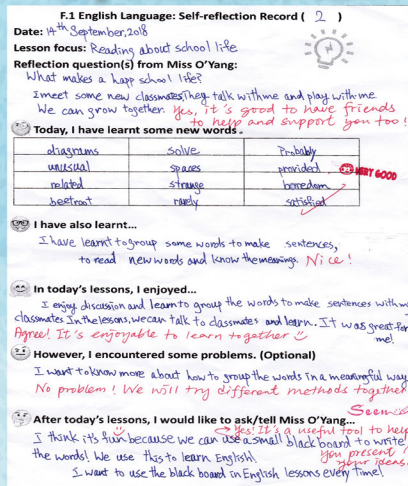 F.1 English Language: Self-reflection Record ( 2 )
Date: 14th September, 2018
Lesson focus: Reading about school life
Reflection question(s) from Miss O'Yang:
What makes a happ school life?
I meet some new classmates. They talk with me and play with me
We can grow together. Yes, it's good to have friends
to help and support you too!
Today, I have learnt some new words.
diagrams solve Probably
unusual spaces provided VERY GOOD
related strange boredom
beetroot rarely satisfied
I have also learnt...
I have learnt to group some words to make sentences,
to read new words and know the meanings. Nice!
In today's lessons, I enjoyed...
I enjoy discussion and learn to group the words to make sentences with m
classmates. In the lessons, we can talk to classmates and learn. It was great for
me!
Agree! It's enjoyable to learn together
However, I encountered some problems. (Optional)
I want to know more about how to group the words in a meaningful way
No problem! We will try different methods together
After today's lessons, I would like to ask/tell Miss O'Yang...
Yes! It's a useful tool to help
I think it's fun because we can use a small black board to write
the words! We use this to learn English. you present
your ideas.
I want to use the black board in English lessons every time!